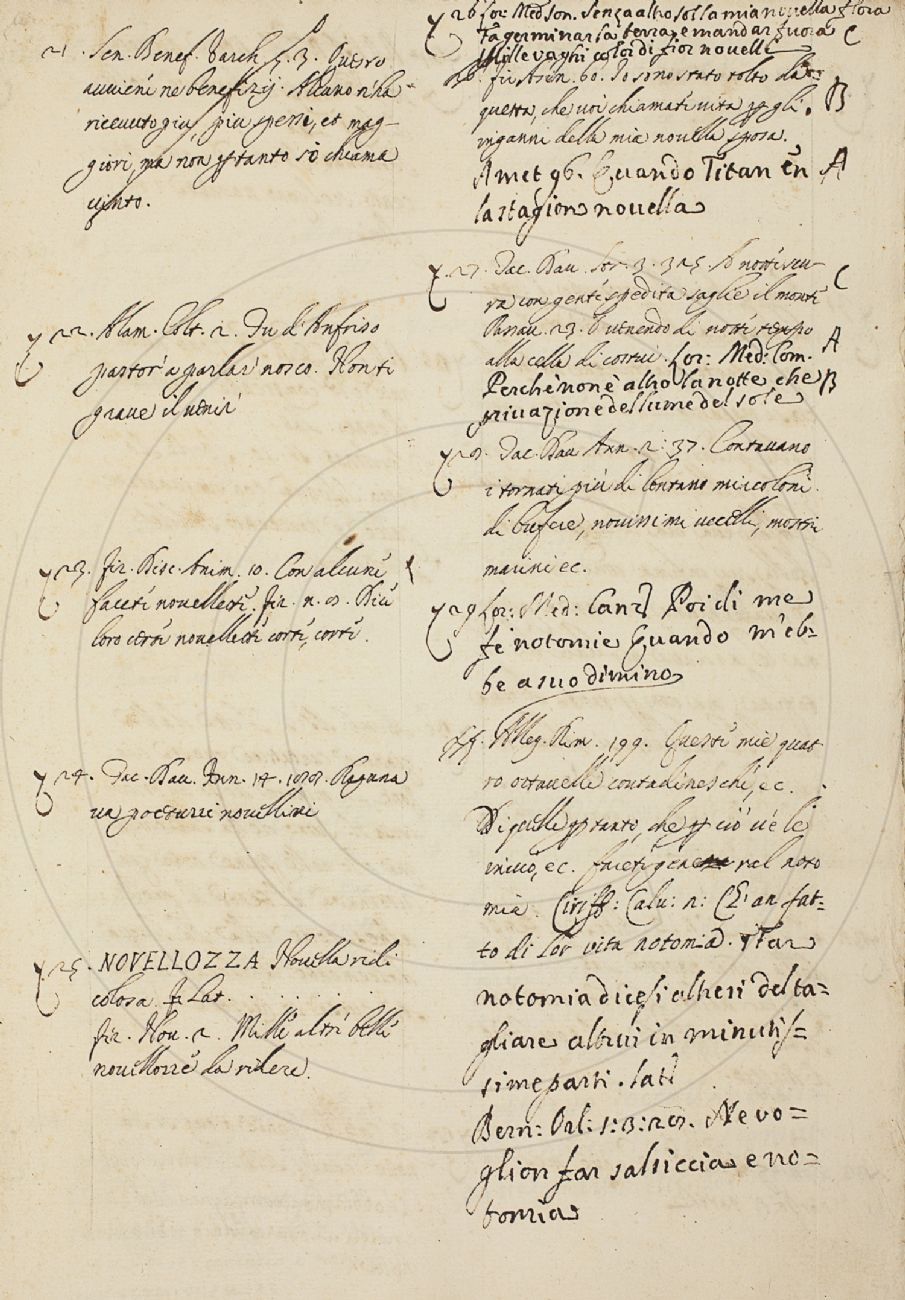 21. Sen. Benef. Varch. 5. 3. Questo
avviení ne benefizij. Alcuno n'ha
ricevuto giu, piu spessi, et mag-
giori, ma non ꝑtanto si chiama
vinto.
22. Alam. Colt. 2. Tu d'Anfriso
pastor' a parlar' nosco. Non ti
grave il venir'
23. fir. Disc. Anim. 10. Con alcuni
faceti novelletti. fir. n. 8. Dicea
loro certi novelletti corti, corti.
24. Tac. Dav. Ann. 14. 188. Raguna
va poeturi novellini
25. NOVELLOZZA Novella ridi
colosa. F. Lat. . . . . . .
fir. Nov. 2. Mille altri belle
novellozze da ridere.
26 Lor: Med son. Senza altro sol la mia novella flora
Fa germinar la terra e mandar fuora C
Mille vaghi color di fior novelli
26. fir Asin. 60. Io sono stato tolto da
questa, che voi chiamati vita ꝑ gli B
inganni della mia novella sposa.
Amet 96. Quando Titan en A
la stagion novella
27. Tac. Dav. Stor. 3. 325. A notti scu-
ra con genti spedita saglie il monti C
Passav. 23. E venendo di notti tempo
alla cella di costui. Lor: Med: Com. A
Perche non è altro la notte che B
privazione del lume del sole
28. Tac. Dav. Ann. 2. 37. Contavano
i tornati piu di lontano miracoloni
di bufere, novissimi uccelli, mostri
marini ec.
29 Lor: Med: Canz Poi di me
fe notomie Quando m'eb=
be a suo dimino
ff. Alleg. Rim. 199. Questi mie quat
tro ottavelle contadineschi, ec.
Di quelle ꝑtanto, che ꝑ ciò v'è le
invio, ec. facetigene nel noto
mia. Ciriff: Calv: n: Ch'an fat-
to di lor vita notomia. Far
notomia dicesi altresi del ta=
gliare altrui in minutis-
sime parti. lat.
Bern: Orl: 1:3:28. Ne vo=
glion far salsiccia e no=
tomia